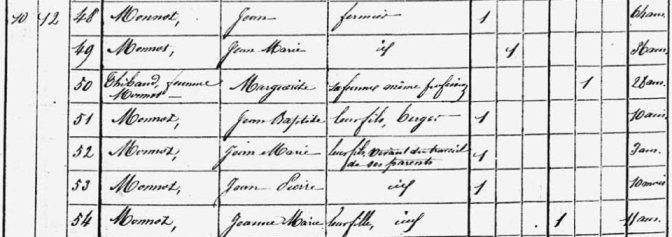 10 12 48 Monnot, Jean fermier 1 64 ans.
49 Monnot, Jean Marie id 1 36 ans.
50 Thibaud, femme Monnot Marguerite sa femme même profession 1 28 ans.
51 Monnot, Jean Baptiste leur fils, berger 1 10 ans.
52 Monnot, Jean Marie leur fils, vivant du travail de ses parents 1 3 ans.
53 Monnot, Jean Pierre id 1 10 mois
54 Monnot, Jeanne Marie leur fille, id 1 11 ans.